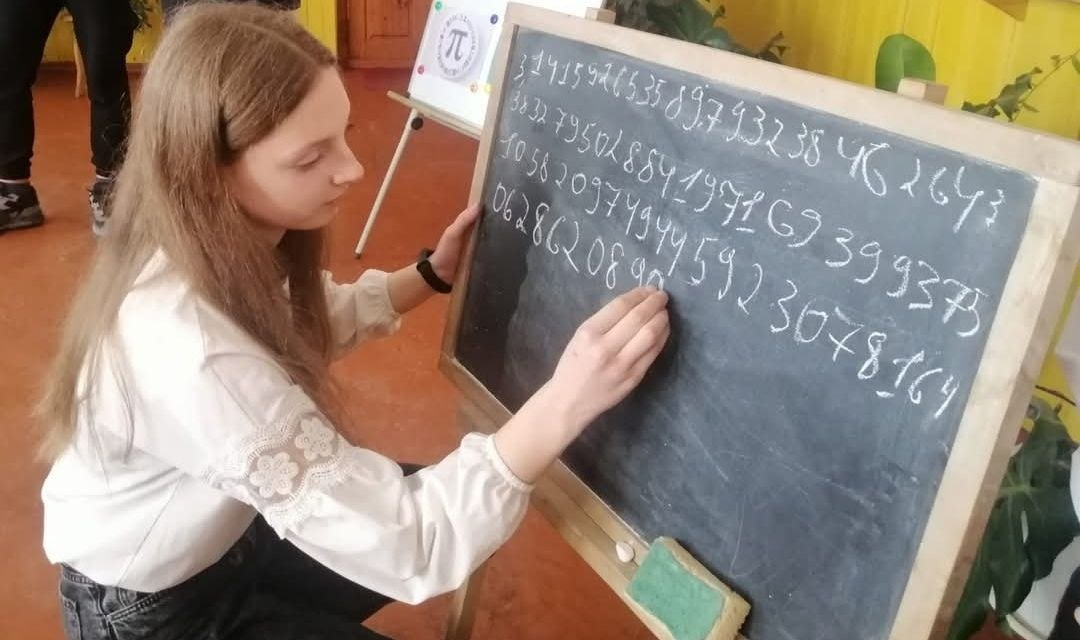 π
3,141592653589793238462643
383279502884197169399375
1058209749445923078164
062862089